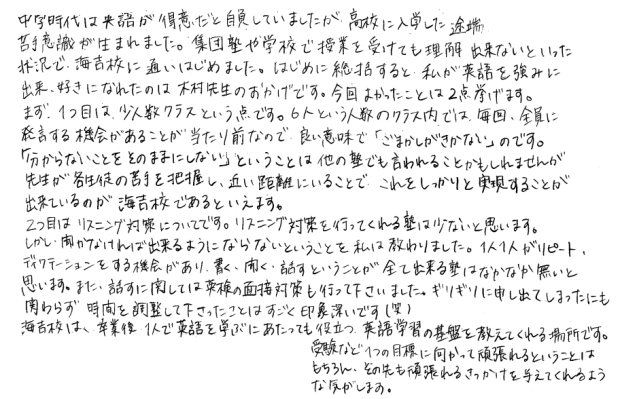 中学時代は英語が得意だと自負していましたが、高校に入学した途端
苦手意識が生まれました。集団塾や学校で授業を受けても理解出来ないといった
状況で、海吉校に通いはじめました。はじめに総括すると、私が英語を強みに
出来、好きになれたのは木村先生のおかげです。今回よかったことは2点挙げます。
まず、1つ目は、少人数クラスという点です。6人という人数のクラス内では、毎回、全員に
発言する機会があることが当たり前なので、良い意味で「ごまかしがきかない」のです。
「分からないことをそのままにしない」ということは他の塾でも言われることかもしれませんが
先生が各生徒の苦手を把握し、近い距離にいることで、これをしっかりと実現することが
出来ているのが海吉校であるといえます。
2つ目はリスニング対策についてです。リスニング対策を行ってくれる塾は少ないと思います。
しかし、聞かなければ出来るようにならないということを私は教わりました。1人1人がリピート、
ディクテーションをする機会があり、書く、聞く、話すということが全て出来る塾はなかなか無いと
思います。また、話すに関しては英検の面接対策も行って下さいました。ギリギリに申し出てしまったにも
関わらず、時間を調整して下さったことはすごく印象深いです(笑)
海吉校は、卒業後、1人で英語を学ぶにあたっても役立つ、英語学習の基盤を教えてくれる場所です。
受験など1つの目標に向かって頑張れるということは
もちろん、その先も頑張れるきっかけを与えてくれるよう
な気がします。